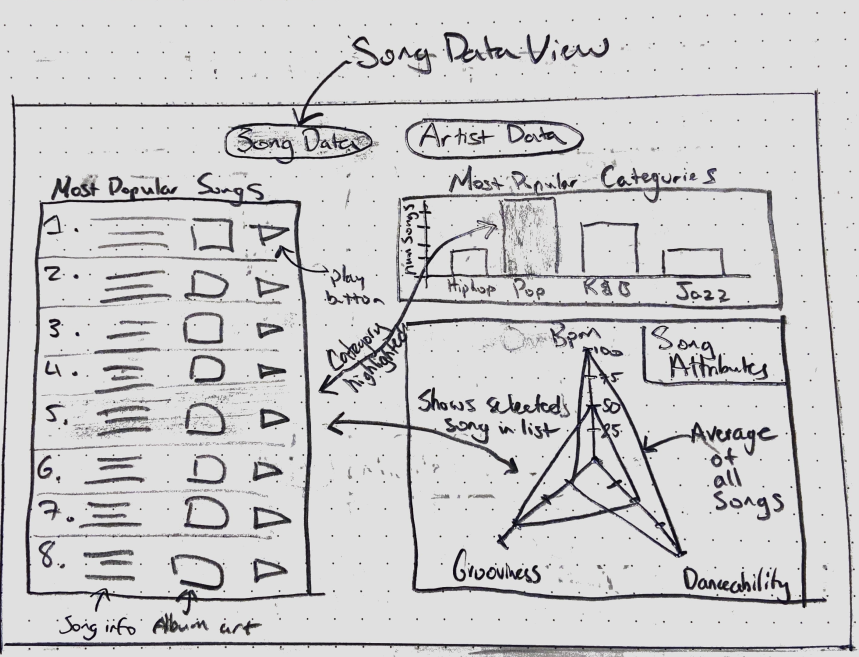 Song Data View
Song Data
Artist Data
Most Popular Songs
1.
2.
3.
4.
5.
6.
7.
8.
play
button
Song info
Album art
Most Popular Categories
Num Songs
Hiphop
Pop
R&B
Jazz
Category
highlighted
Song
Attributes
Bpm
100
75
50
25
Shows selected
song in list
Average
of
all
Songs
Grooviness
Danceability